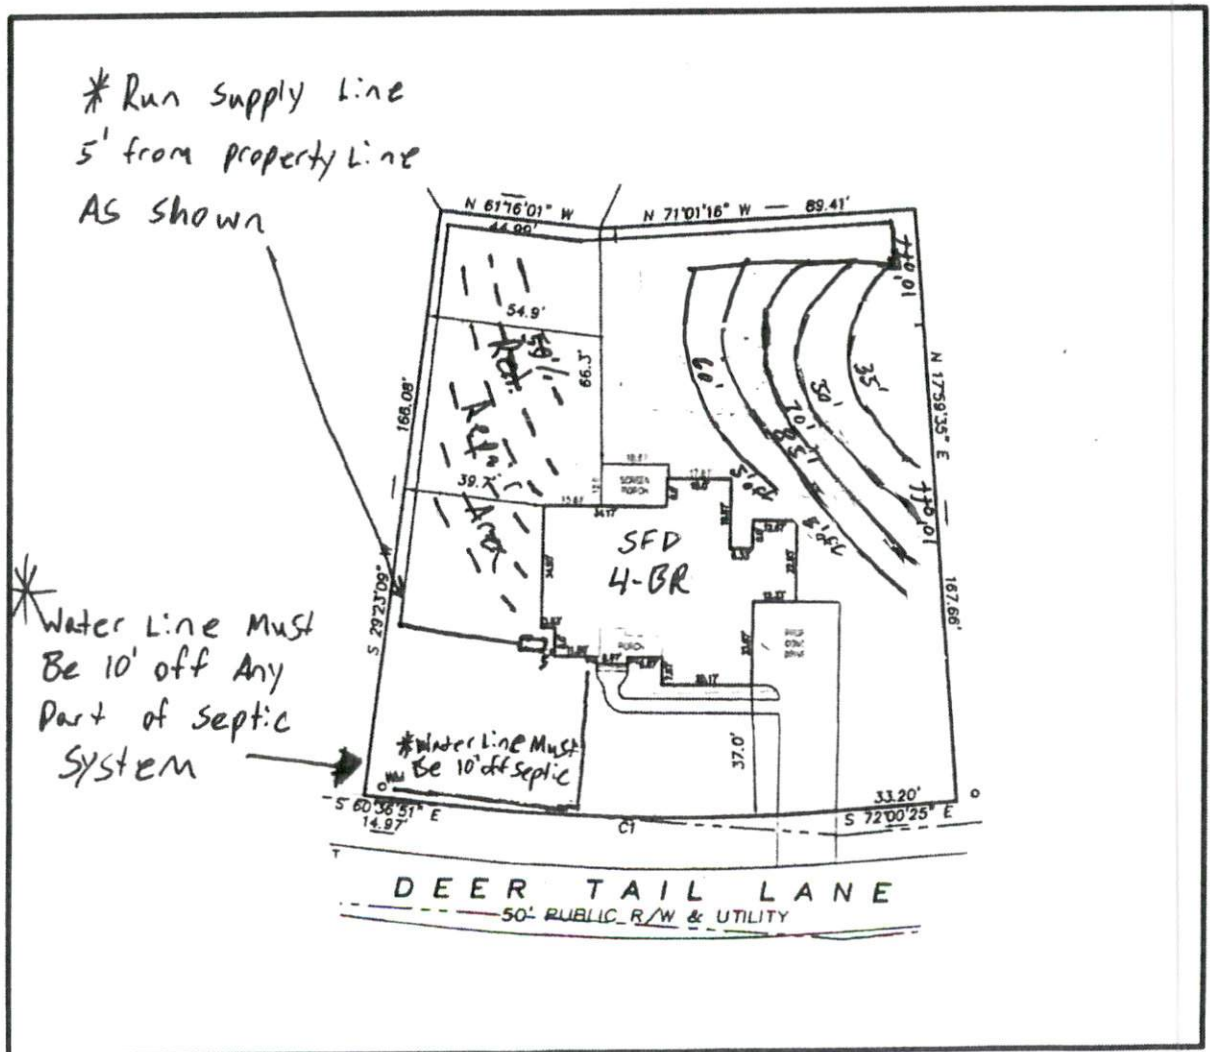 * Run Supply Line
5' from property Line
As shown
N 61°16'01" W
44.99'
N 71°01'16" W
89.41'
10' off
54.9'
66.3'
Repair Area
60'
70'
50'
35'
166.08'
N 17°59'35" E
39.7'
SCREEN
PORCH
10' off
SFD
4-BR
S 29°23'09" W
167.66'
PORCH
* Water Line Must
Be 10' off Any
Part of Septic
System
*Water Line Must
Be 10' off Septic
WM
37.0'
S 60°36'51" E
14.97'
C1
33.20'
S 72°00'25" E
T
DEER TAIL LANE
50' PUBLIC R/W & UTILITY